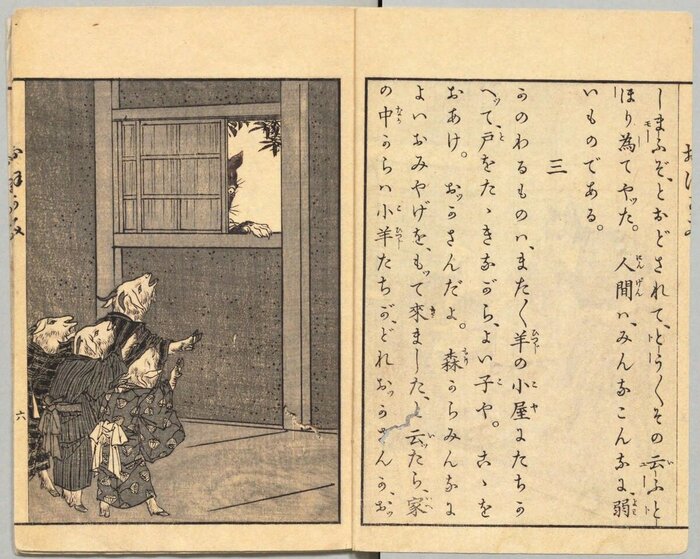 しまふぞ、とおどされて、とう〳〵その云ふと
ほり為てやッた。人間ハ、みんなこんなに弱
いものである。
三
かのわるものハ、また〳〵羊の小屋にたちか
へッて、戸をたゝきながら、よい子や。こゝを
おあけ。おッかさんだよ。森からみんなに
よいおみやげを、もッて來ました、と云たら、家
の中からハ小羊たちが、どれおッかさんかお
六